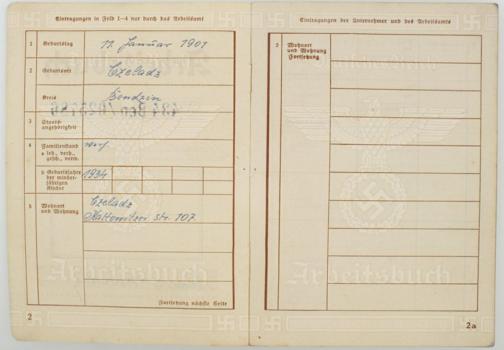 Eintragungen in Feld 1–4 nur durch das Arbeitsamt
1 Geburtstag 11. Januar 1901
2 Geburtsort Czeladz
Kreis Bendzin
3 Staats-
angehörigkeit
4 Familienstand verh
a led., verh.,
gesch., verw.
b Geburtsjahre 1934
der minder-
jährigen
Kinder
5 Wohnort Czeladz
und Wohnung Kattowitzer Str. 107
Arbeitsbuch
Fortsetzung nächste Seite
2
Eintragungen der Unternehmer und des Arbeitsamts
5 Wohnort
und Wohnung
Fortsetzung
Arbeitsbuch
2a